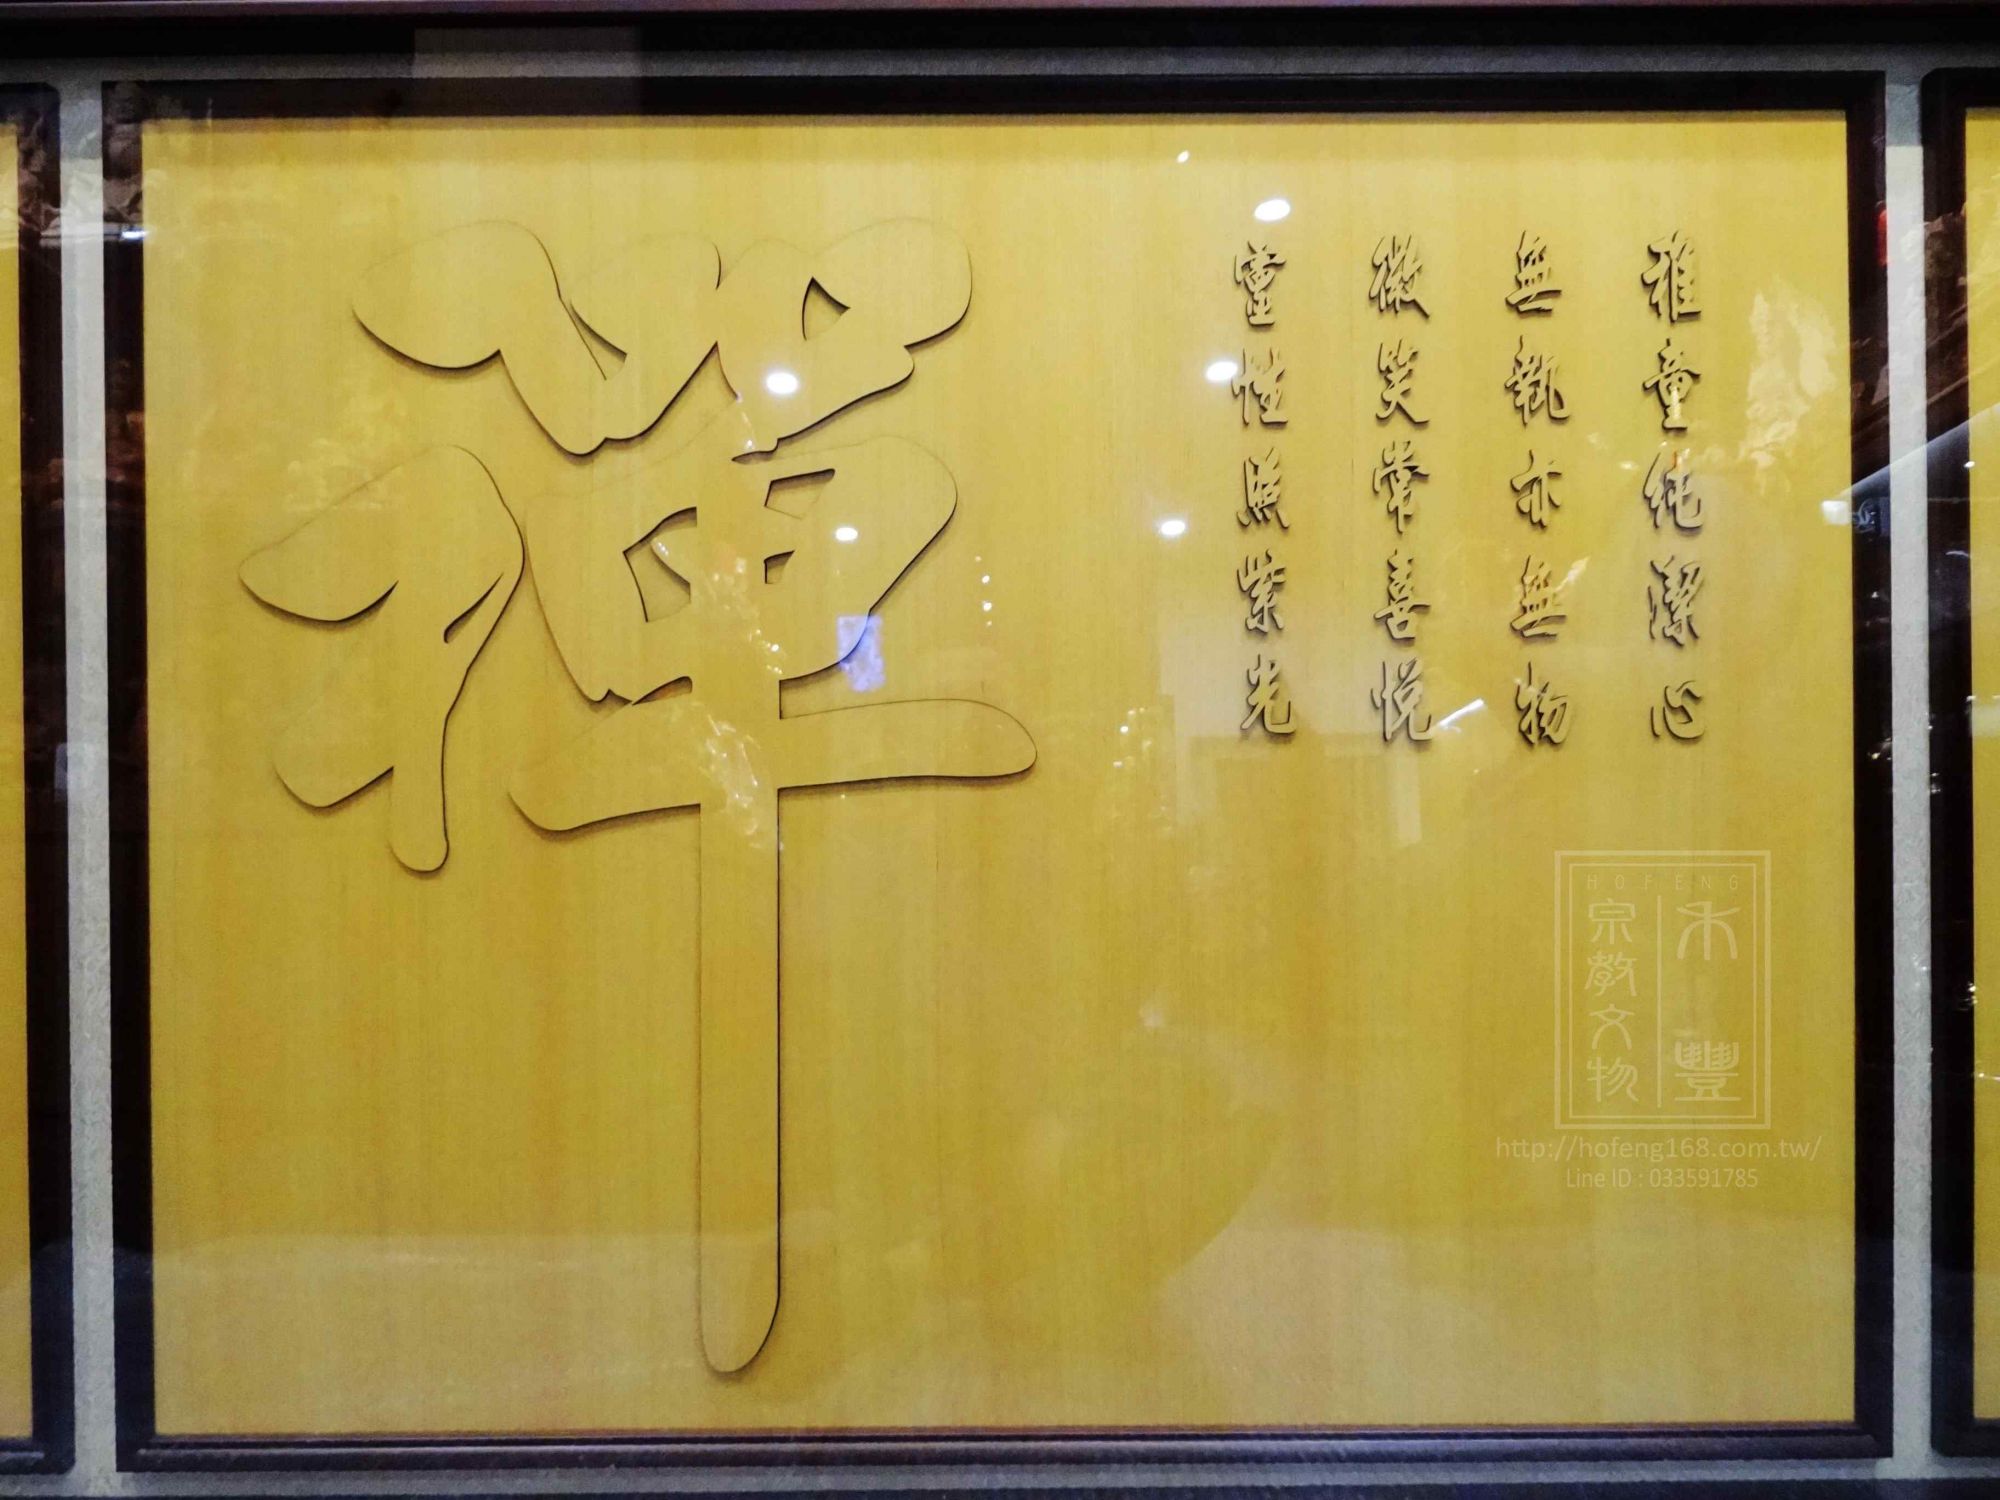 稚童純潔心
無執亦無物
微笑常喜悅
靈性照紫光
禪
HOFENG
禾豐
宗教文物
http://hofeng168.com.tw/
Line ID : 033591785